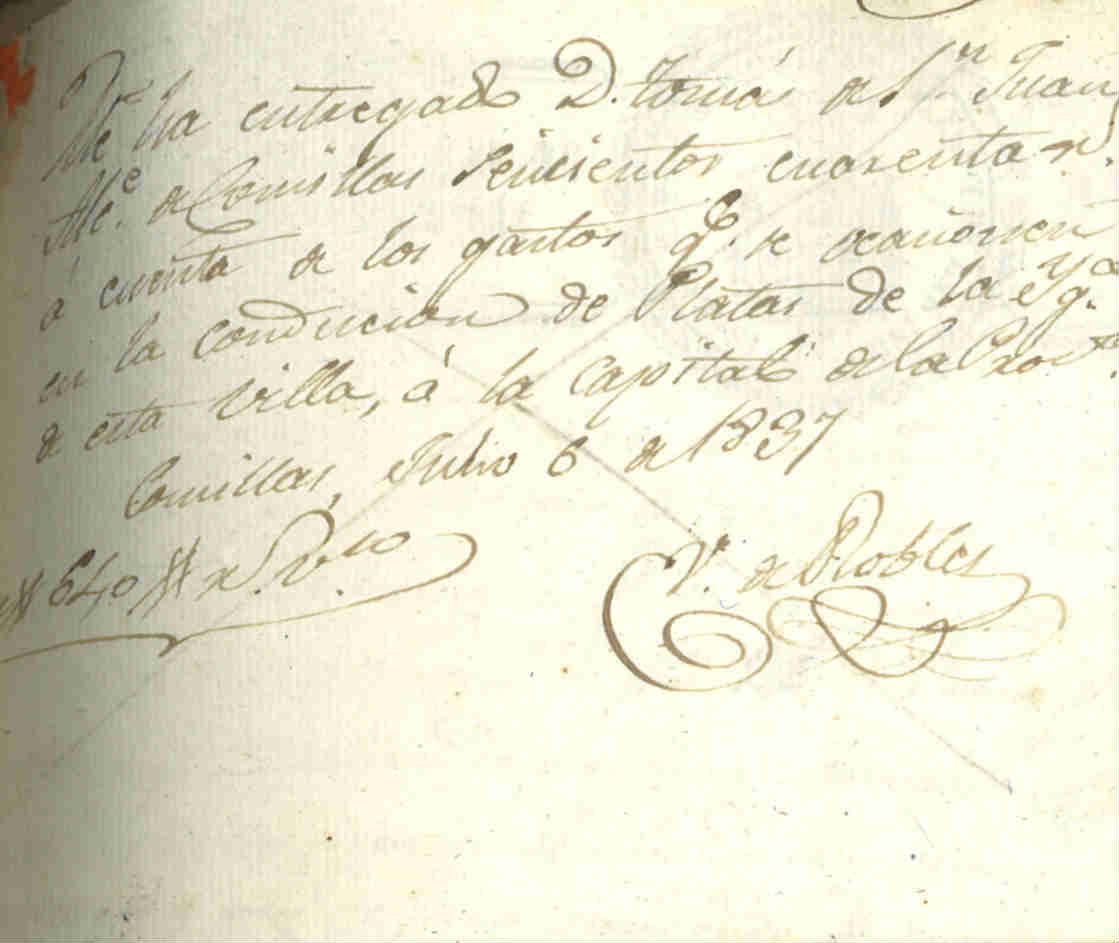 Me ha entregado D. Tomás de Sn Juan
Alce. de Comillas Seiscientos cuarenta rs.
á cuenta de los gastos q. se ocasionen
en la conducion de Platas de la Yga.
de esta villa, á la Capital de la Prova.
Comillas, Julio 6 de 1837
# 640 # rs. vn.
V. de Robles